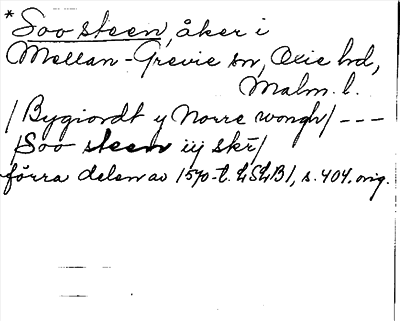 * Soo steen, åker i
Mellan-Grevie sn, Oxie hd,
Malm. l.
/Bygiordt y Norre wongh/ ---
/Soo steen iij skr/
förra delen av 1570-t. LSLB1, s. 404. orig.